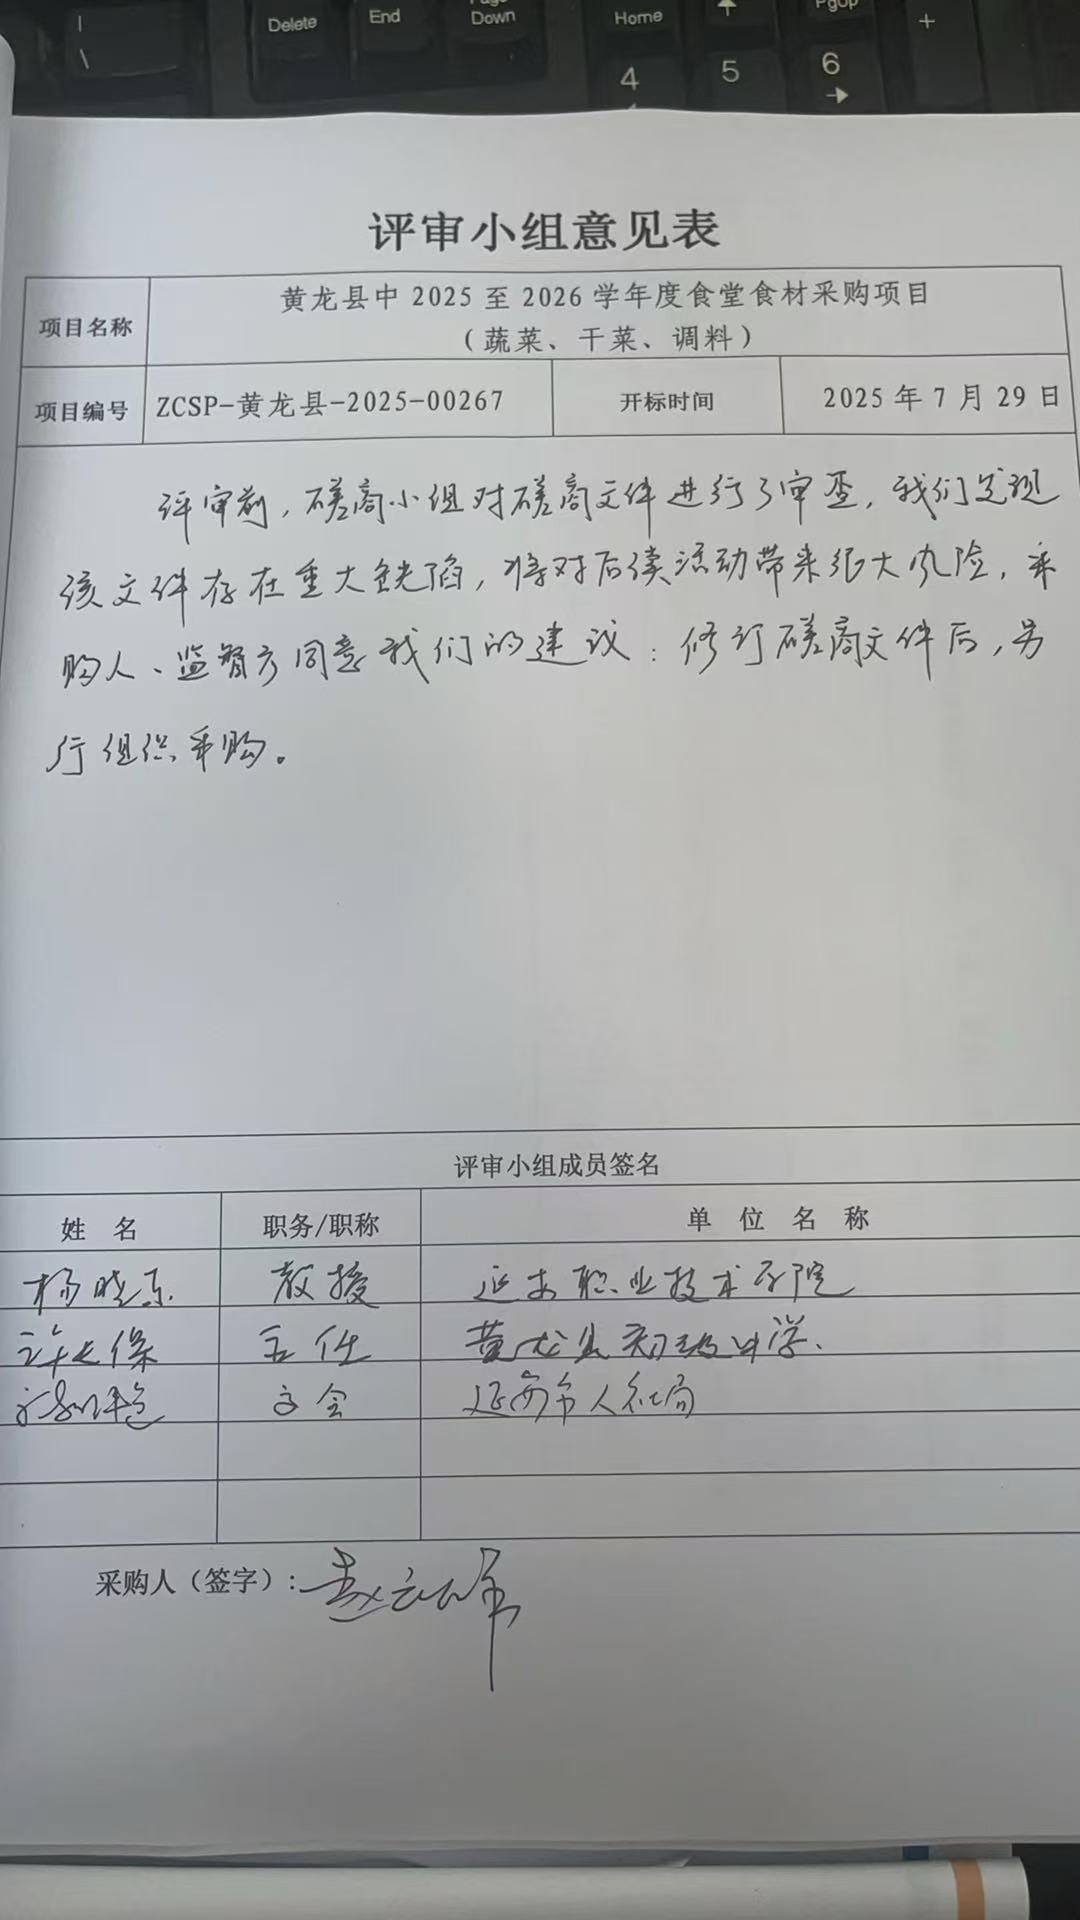 Delete
End
Page
Down
Home
PgUp
+
4
5
6
\
评审小组意见表
项目名称
黄龙县中 2025 至 2026 学年度食堂食材采购项目
（蔬菜、干菜、调料）
项目编号
ZCSP-黄龙县-2025-00267
开标时间
2025 年 7 月 29 日
评审前，磋商小组对磋商文件进行了审查，我们发现
该文件存在重大缺陷，将对后续活动带来很大风险，采
购人、监督方同意我们的建议：修订磋商文件后，另
行组织采购。
评审小组成员签名
姓 名
职务/职称
单 位 名 称
杨晓东
教授
延安职业技术学院
主任
黄龙县初级中学.
延安市人社局
采购人（签字）：